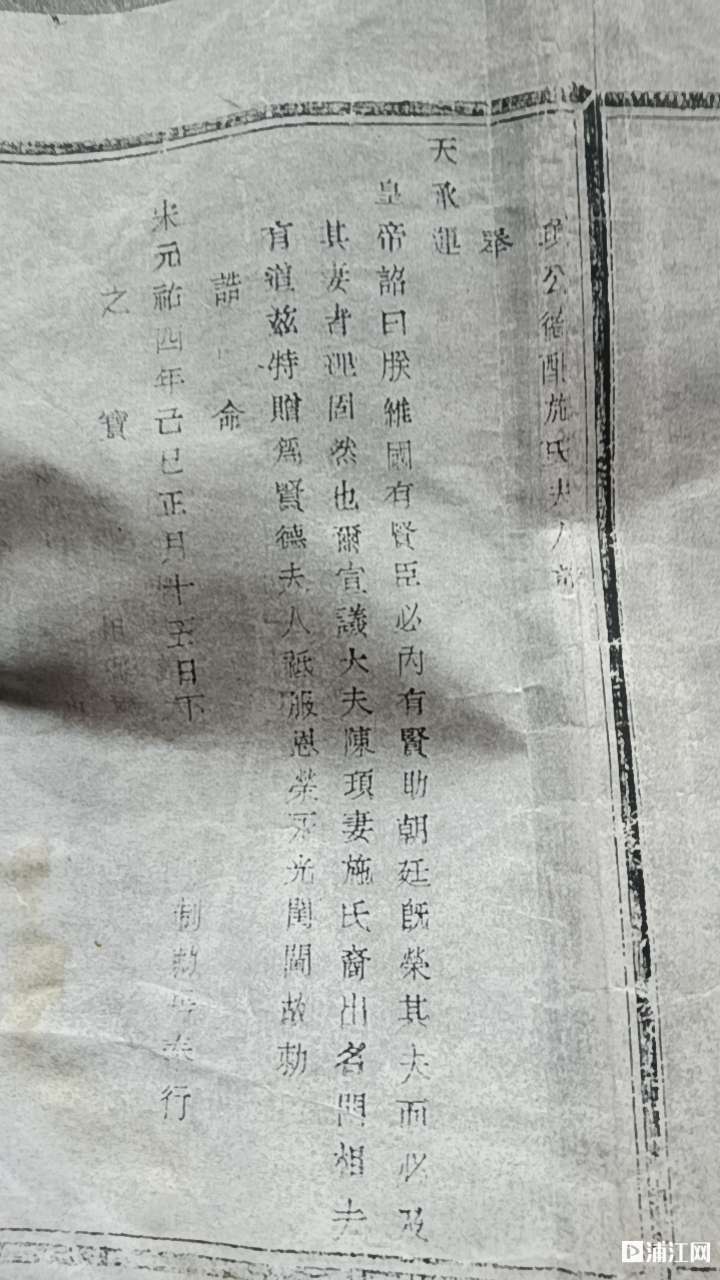 公德配施氏夫人
奉
天承運
皇帝詔曰朕維國有賢臣必內有賢助朝廷既榮其夫而必及
其妻者理固然也爾宣議大夫陳頊妻施氏裔出名門相夫
有道茲特贈爲賢德夫人祗服恩榮丕光閨閫故勅
誥命
宋元祐四年己巳正月十五日下
制勅奉行
之寶
浦江网